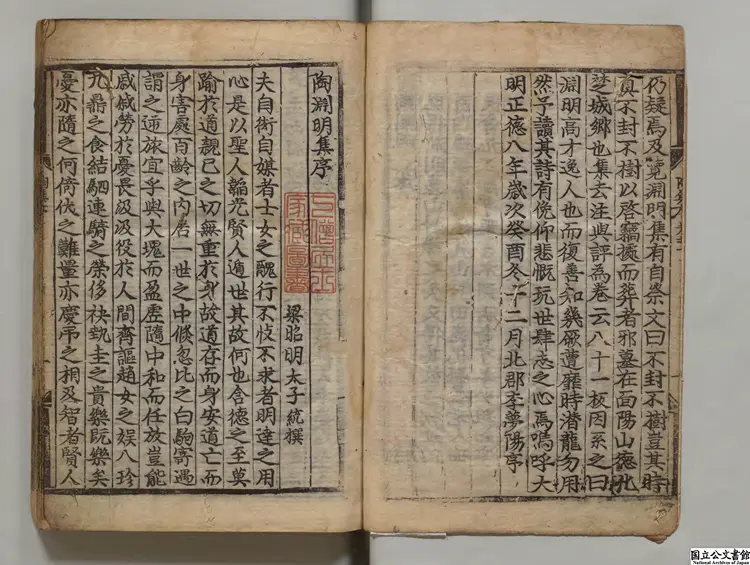 仍疑焉及覽淵明集有自祭文曰不封不樹豈其時
真不封不樹以啓竊據而葬者邪墓在面陽山德化
楚城鄉也集去注與評為卷云八十一板因系之曰
淵明高才逸人也而復善知幾厥遭靡時潛龍勿用
然予讀其詩有俛仰悲慨玩世肆志之心焉嗚呼大
明正德八年歲次癸酉冬十二月北郡李夢陽序
陶淵明集序
梁昭明太子統撰
家藏圖書
夫自衒自媒者士女之醜行不忮不求者明達之用
心是以聖人韜光賢人遁世其故何也含德之至莫
踰於道親己之切無重於身故道存而身安道亡而
身害處百齡之內居一世之中倏忽比之白駒寄遇
謂之逆旅宜乎與大塊而盈虛隨中和而任放豈能
戚戚勞於憂畏汲汲役於人間齊謳趙女之娛八珍
九鼎之食結駟連騎之榮侈袂執圭之貴樂既樂矣
憂亦隨之何倚伏之難量亦慶弔之相及智者賢人
国立公文書館
National Archives of Japan